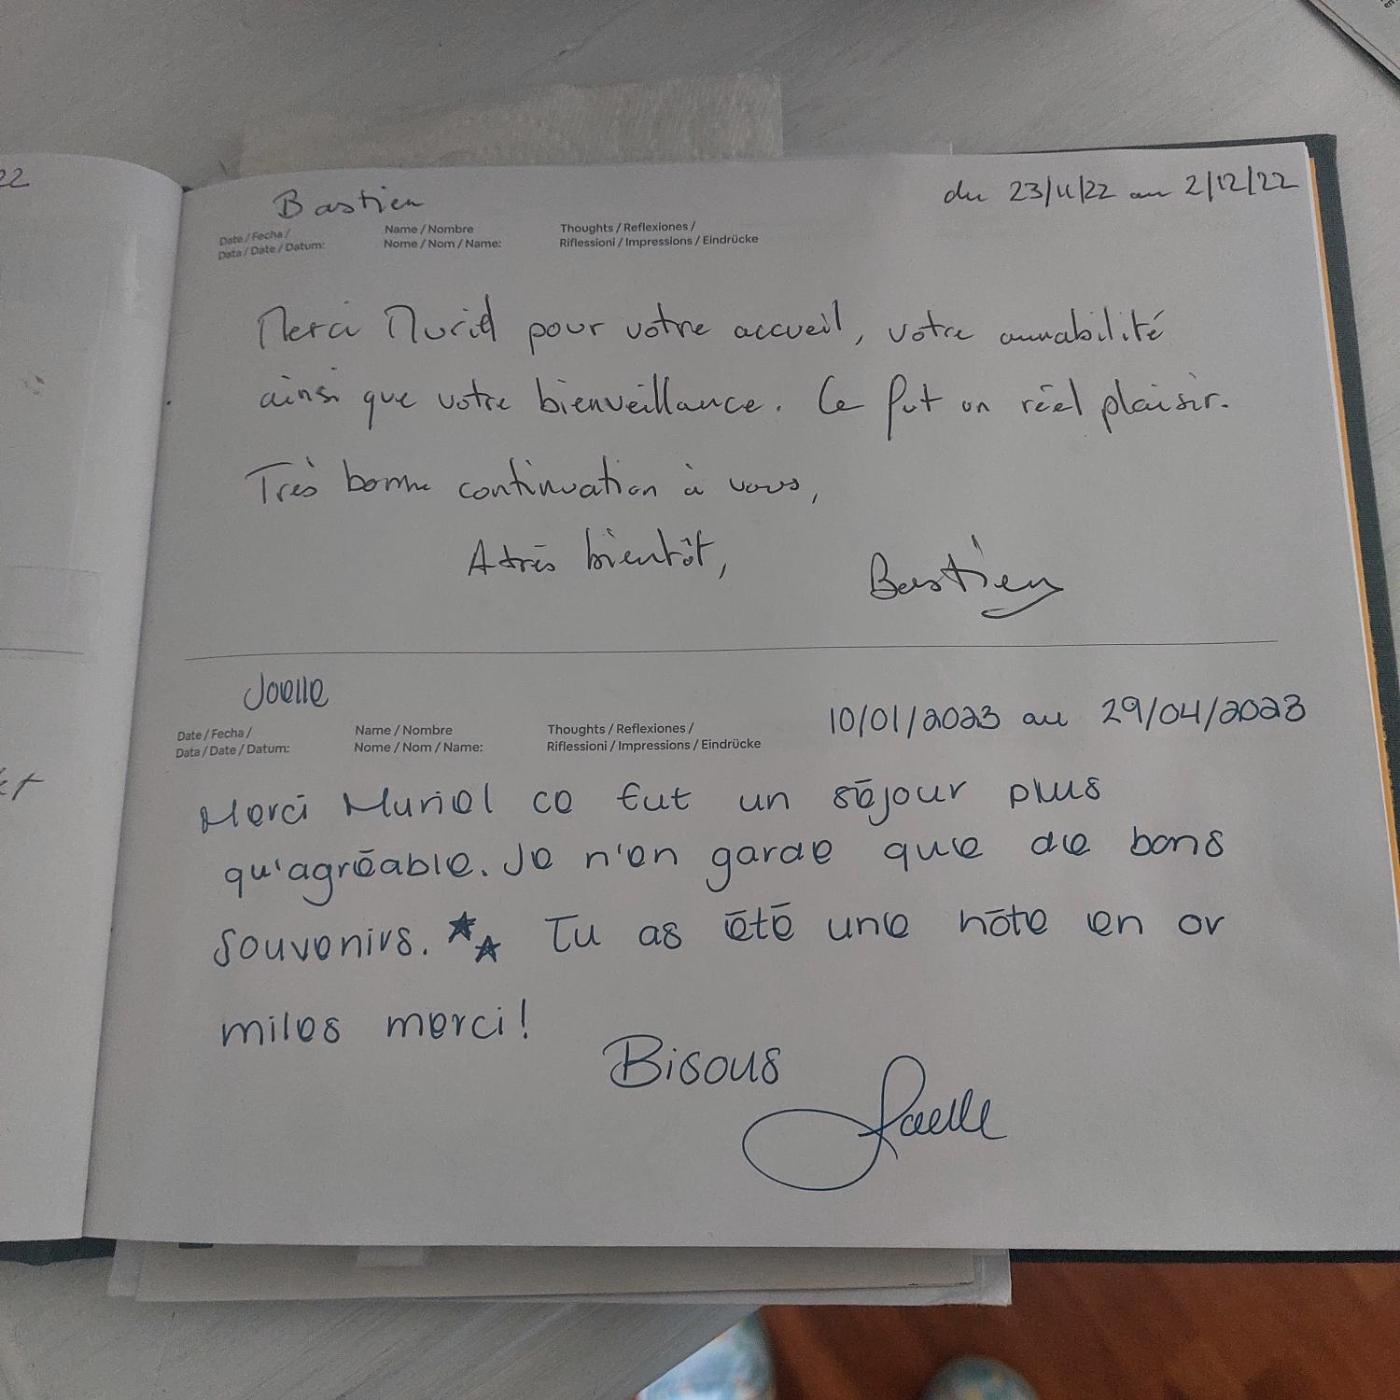 22
Bastien
du 23/11/22 au 2/12/22
Date / Fecha /
Data / Date / Datum:
Name / Nombre
Nome / Nom / Name:
Thoughts / Reflexiones /
Riflessioni / Impressions / Eindrücke
Merci Muriel pour votre accueil, votre amabilité
ainsi que votre bienveillance. Ce fut un réel plaisir.
Très bonne continuation à vous,
A très bientôt,
Bastien
Joelle
10/01/2023 au 29/04/2023
Date / Fecha /
Data / Date / Datum:
Name / Nombre
Nome / Nom / Name:
Thoughts / Reflexiones /
Riflessioni / Impressions / Eindrücke
Merci Muriel ce fut un séjour plus
qu'agréable. Je n'en garde que de bons
souvenirs. Tu as été une hôte en or
miles merci!
Bisous
Joelle